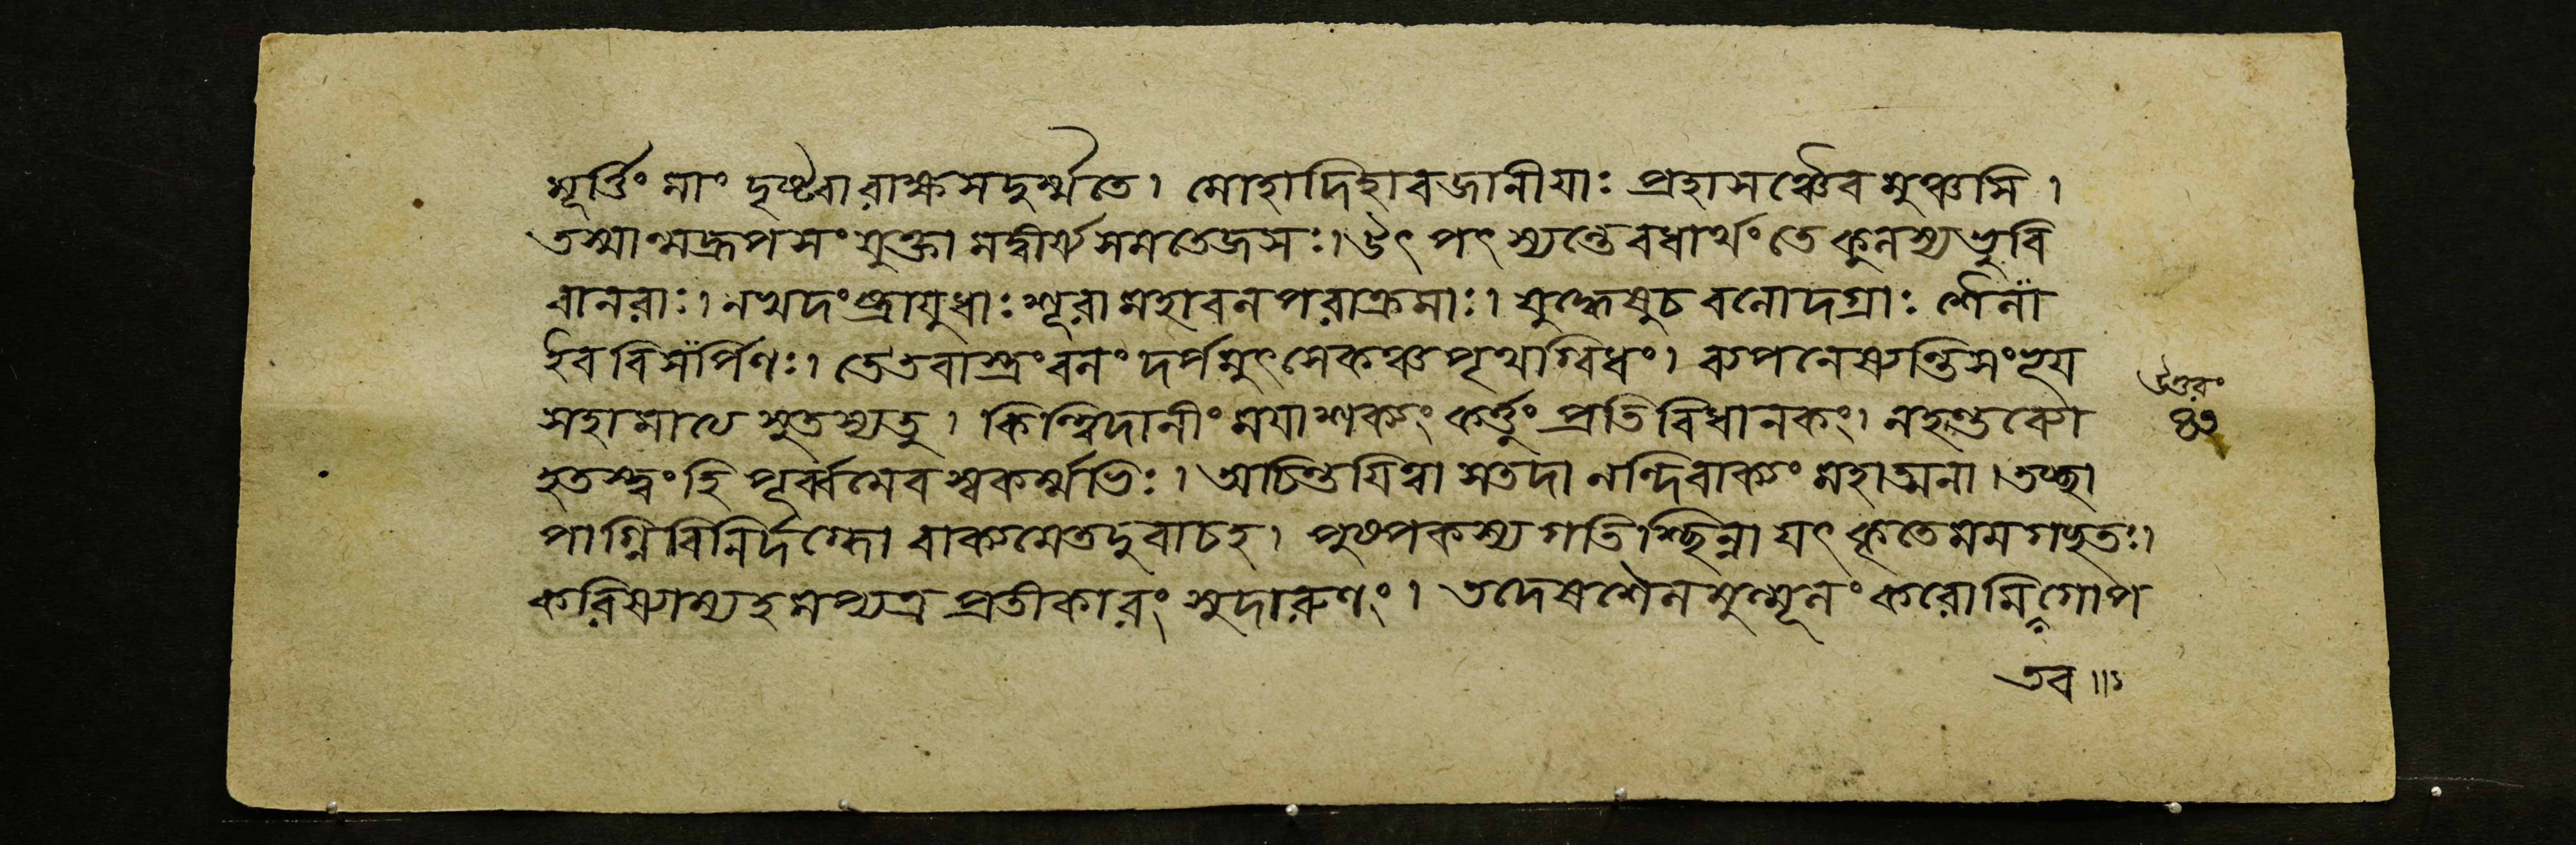 মূর্ত্তিং মাং দৃষ্টবা রাক্ষসদুর্ম্মতে। মোহাদিহাবজানীষাঃ প্রহাসঞ্চৈবমুঞ্চসি।
তস্মান্মদ্রূপসংযুক্তা মদ্বীর্য্যসমতেজসঃ। উৎপৎস্যন্তেবধার্থংতে কুলস্যতুবি
বানরাঃ। নখদংষ্ট্রাযুধাঃশূরা মহাবলপরাক্রমাঃ। যুদ্ধেষুচ বলোদগ্রাঃ শৈলা
ইব বিসর্পিণঃ। তেতবাস্ত্রংবলং দর্পমুৎসেকঞ্চপৃথাগ্বিধং। ব্যপনেষ্যন্তিসংভূয
সহামাত্যে সুতস্যতু। কিন্ত্বিদানীং মযাশক্যং কর্ত্তুং প্রতিবিধানকং। নহন্তব্যো
হতস্ত্বংহি পূর্ব্বমেব স্বকর্ম্মভিঃ। অচিন্তযিত্বা সতদা নন্দিবাক্যং মহাত্মনা। তচ্ছা
পাগ্নিবিনির্দগ্ধো বাক্যমেতদুবাচহ। পুষ্পকস্য গতিশ্ছিন্না যৎকৃতেমমগচ্ছতঃ।
করিষ্যাম্যহমপ্যত্র প্রতীকারং সুদারুণং। তদেষশৈলমুন্মূলং করোমি গোপ
তব॥
উত্তরং
৪২